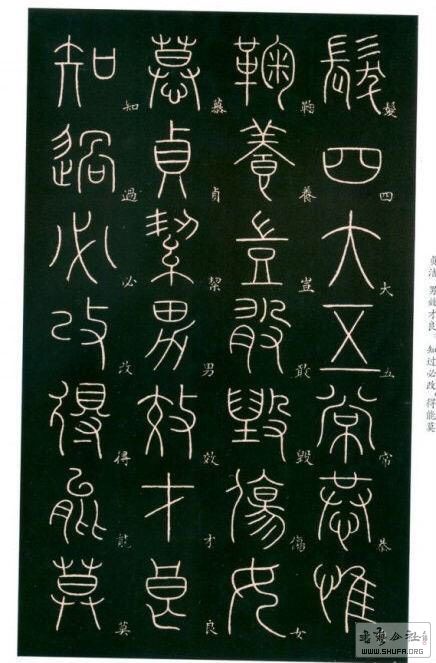 贞洁，男效才良。知过必改，得能莫
髮四大五常恭惟
髮四大五常恭
鞠養豈敢毀傷女
鞠養豈敢毀傷女
慕貞絜男效才良
慕貞絜男效才良
知過必改得能莫
知過必改得能莫
书艺公社
WWW.SHUFA.ORG